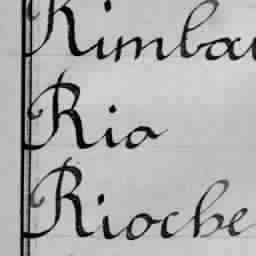 Rimbau
Rio
Rioche